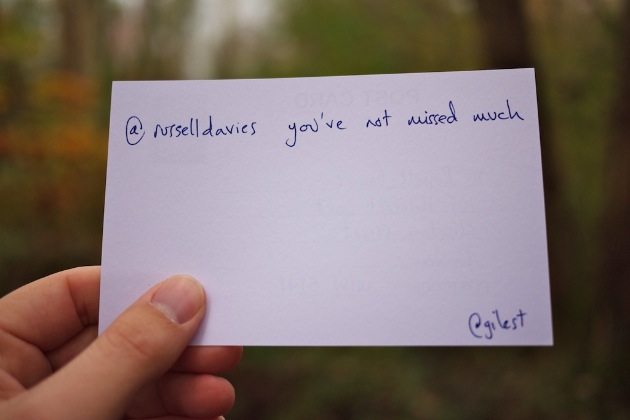 @russelldavies you've not missed much
@gilest